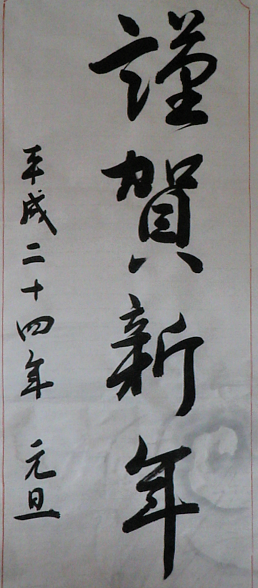 謹賀新年
平成二十四年 元旦